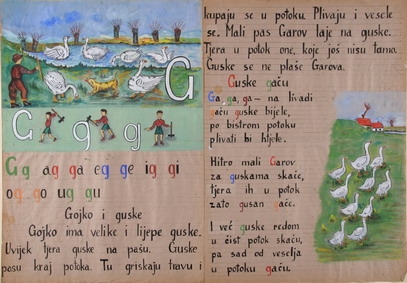 G
G g g
Gg ag ga eg ge ig gi
og go ug gu
Gojko i guske
Gojko ima velike i lijepe guske.
Uvijek tjera guske na pašu. Guske
pasu kraj potoka. Tu griskaju travu i
kupaju se u potoku. Plivaju i vesele
se. Mali pas Garov laje na guske.
Tjera u potok one, koje još nisu tamo.
Guske se ne plaše Garova.
Guske gaču
Ga, ga, ga — na livadi
gaču guske bijele,
po bistrom potoku
plivati bi htjele.
Hitro mali Garov
za guskama skače,
tjera ih u potok
zato gusan gače.
I već guske redom
u čist potok skaču,
pa sad od veselja
u potoku gaču.